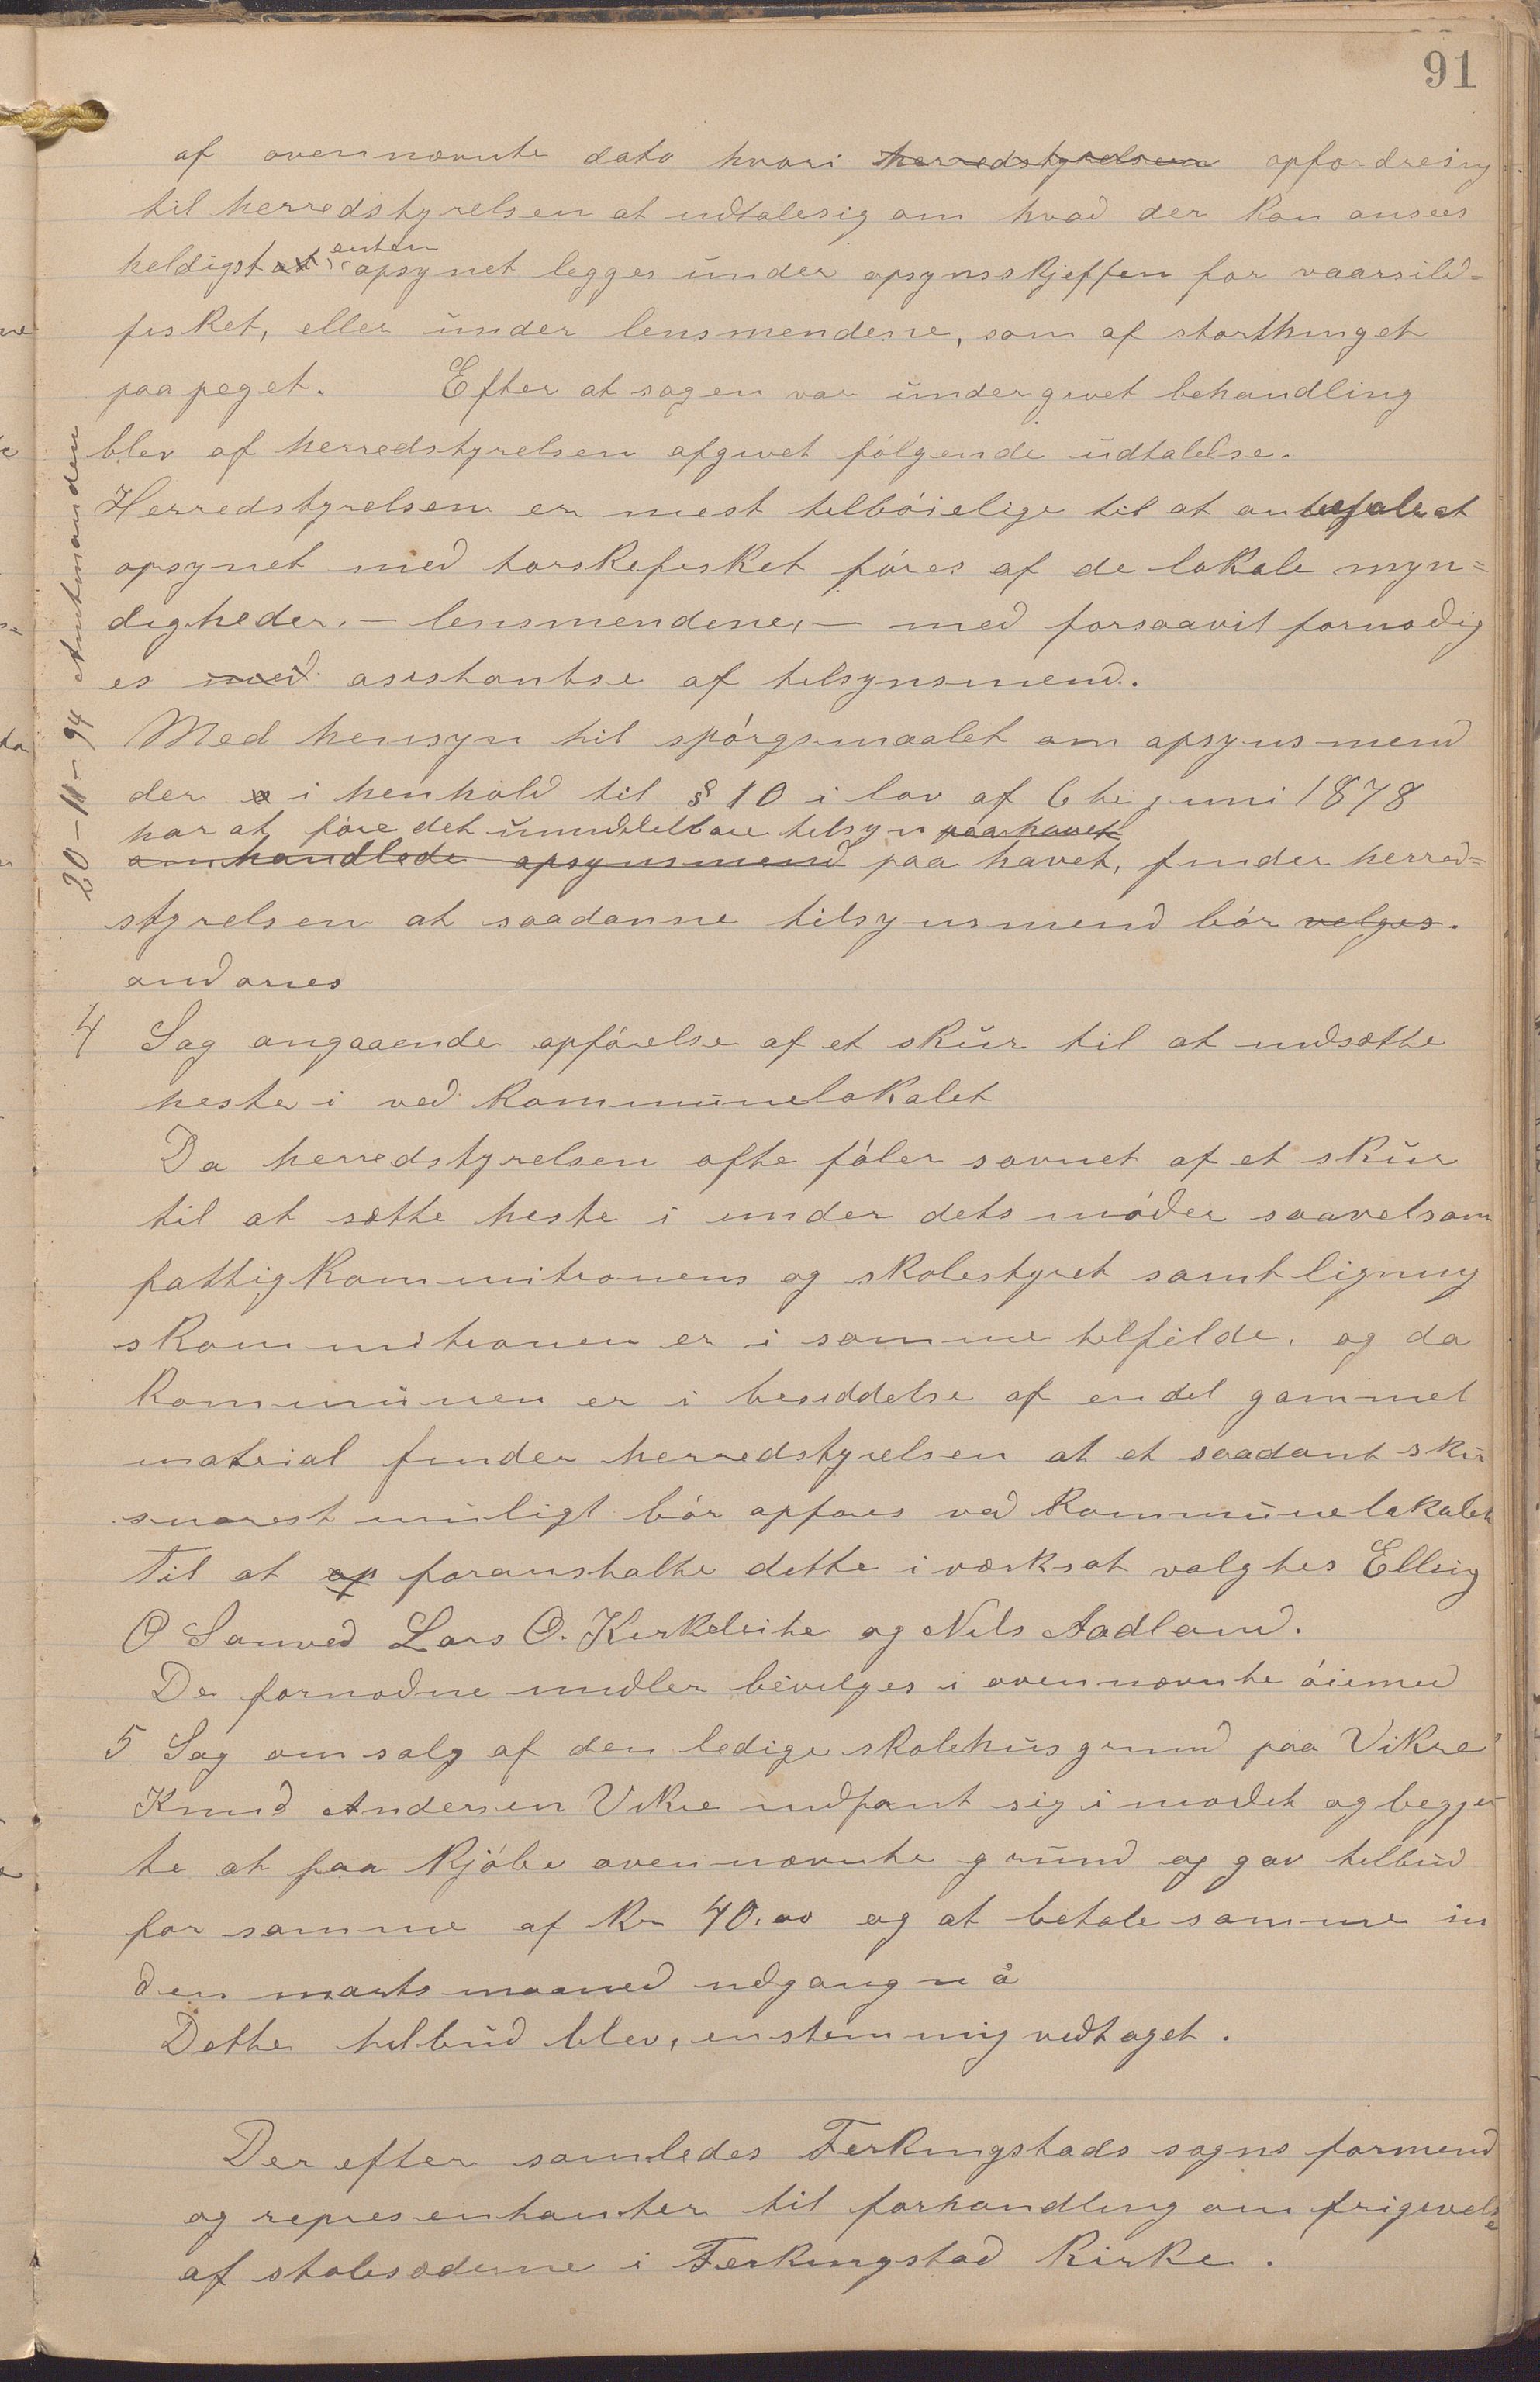 91
af ovennævnte dato hvori herredstyrelsen opfordresing
til herredstyrelsen at udtalesig om hvad der kan ansees
heldigst at enten opsynet legges under opsynsskjeffen for vaarsild=
fisket, eller under lensmendene, som af storthinget
paapeget. Efter at sagen var undergivet behandling
blev af herredstyrelsen afgivet følgende udtalelse.
Herredstyrelsen er mest tilbøielige til at anbefale at
opsynet med torskefisket føres af de lokale myn=
digheder, – lensmendene, – med forsaavit fornødig
es med asistantse af tilsynsmend.
20-11-94 Amtmanden
Med hensyn til spørgsmaalet om opsynsmend
der i henhold til § 10 i lov af 6te juni 1878
har at føre det umidelbare tilsyn paa havet
omhandlede opsynsmend paa havet, finder herred=
styrelsen at saadanne tilsynsmend bør velges.
andanes
4 Sag angaaende opførelse af et skur til at indsætte
heste i ved kommunelokalet
Da herredstyrelsen ofte føler savnet af et skur
til at sætte heste i under dets møder saavelsom
fattigkommitionens og skolestyret samt ligning
skommitionen er i samme tilfelde, og da
kommunen er i besiddelse af endel gammel
material finder herredstyrelsen at et saadant skur
snarest muligt bør opføres ved kommunelokalet
Til at op foranstalte dette iværksat valgtes Ellsig
O Sanved Lars O. Kirkeleite og Nils Aadland.
De fornødne midler bevilges i ovennævnte øiemed
5 Sag om salg af den ledige skolehusgrund paa Vikre
Knud Andersen Vikre indfant sig i mødet og begjer
te at faa kjøbe ovennævnte grund og gav tilbud
for samme af kr 40.00 og at betale samme in
den marts maaned udgang n å
Dette tilbud blev, enstemmig vedtaget.
Der efter samledes Ferkingstads sogns formend
og representanter til forhandling om frigivelse
af stolesæderne i Ferkingstad Kirke.